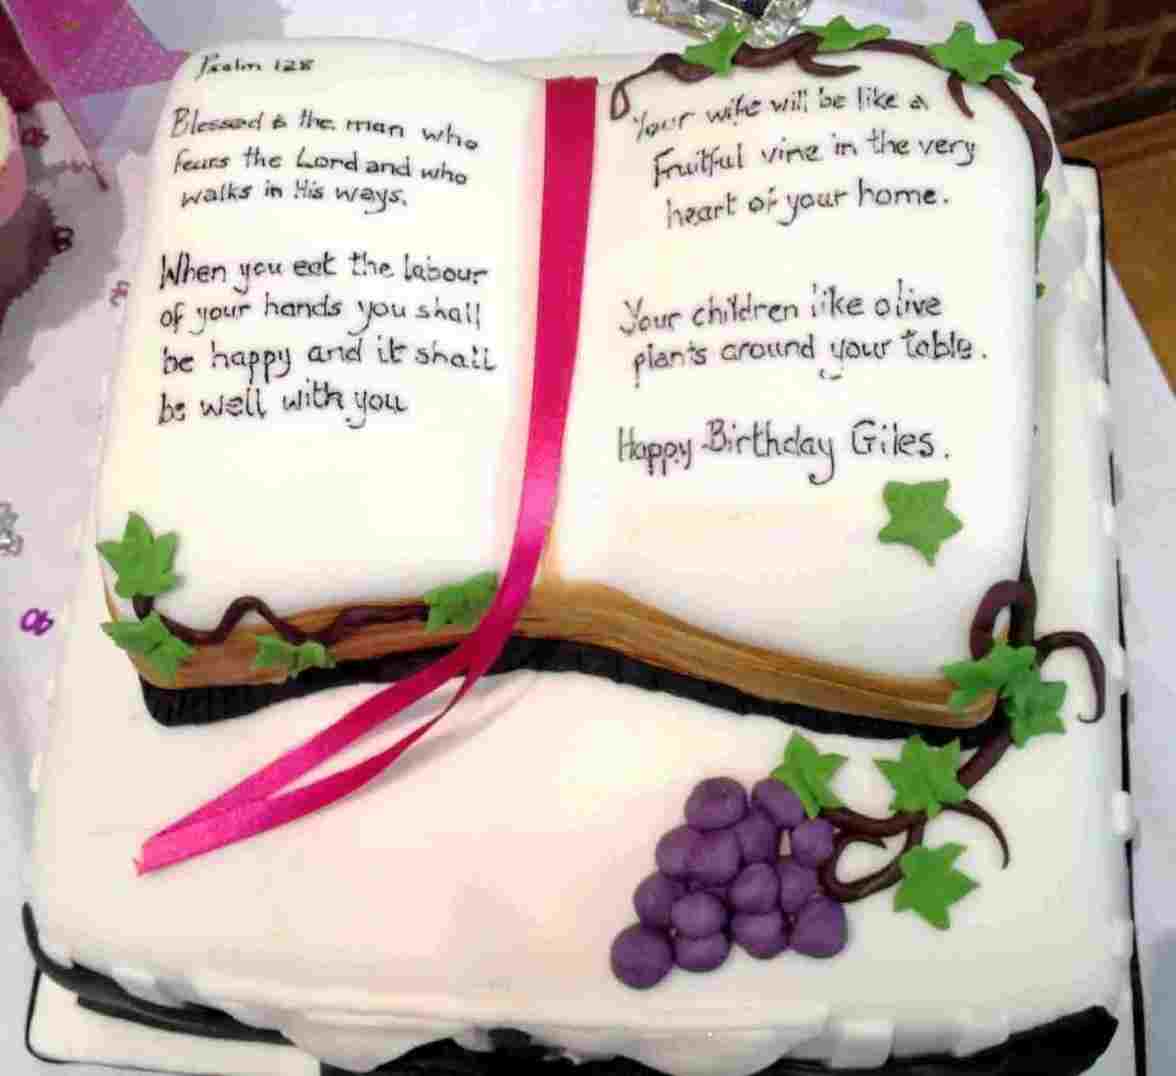 Psalm 128
Blessed is the man who
fears the Lord and who
walks in His ways.
When you eat the labour
of your hands you shall
be happy and it shall
be well with you
Your wife will be like a
Fruitful vine in the very
heart of your home.
Your children like olive
plants around your table.
Happy Birthday Giles.